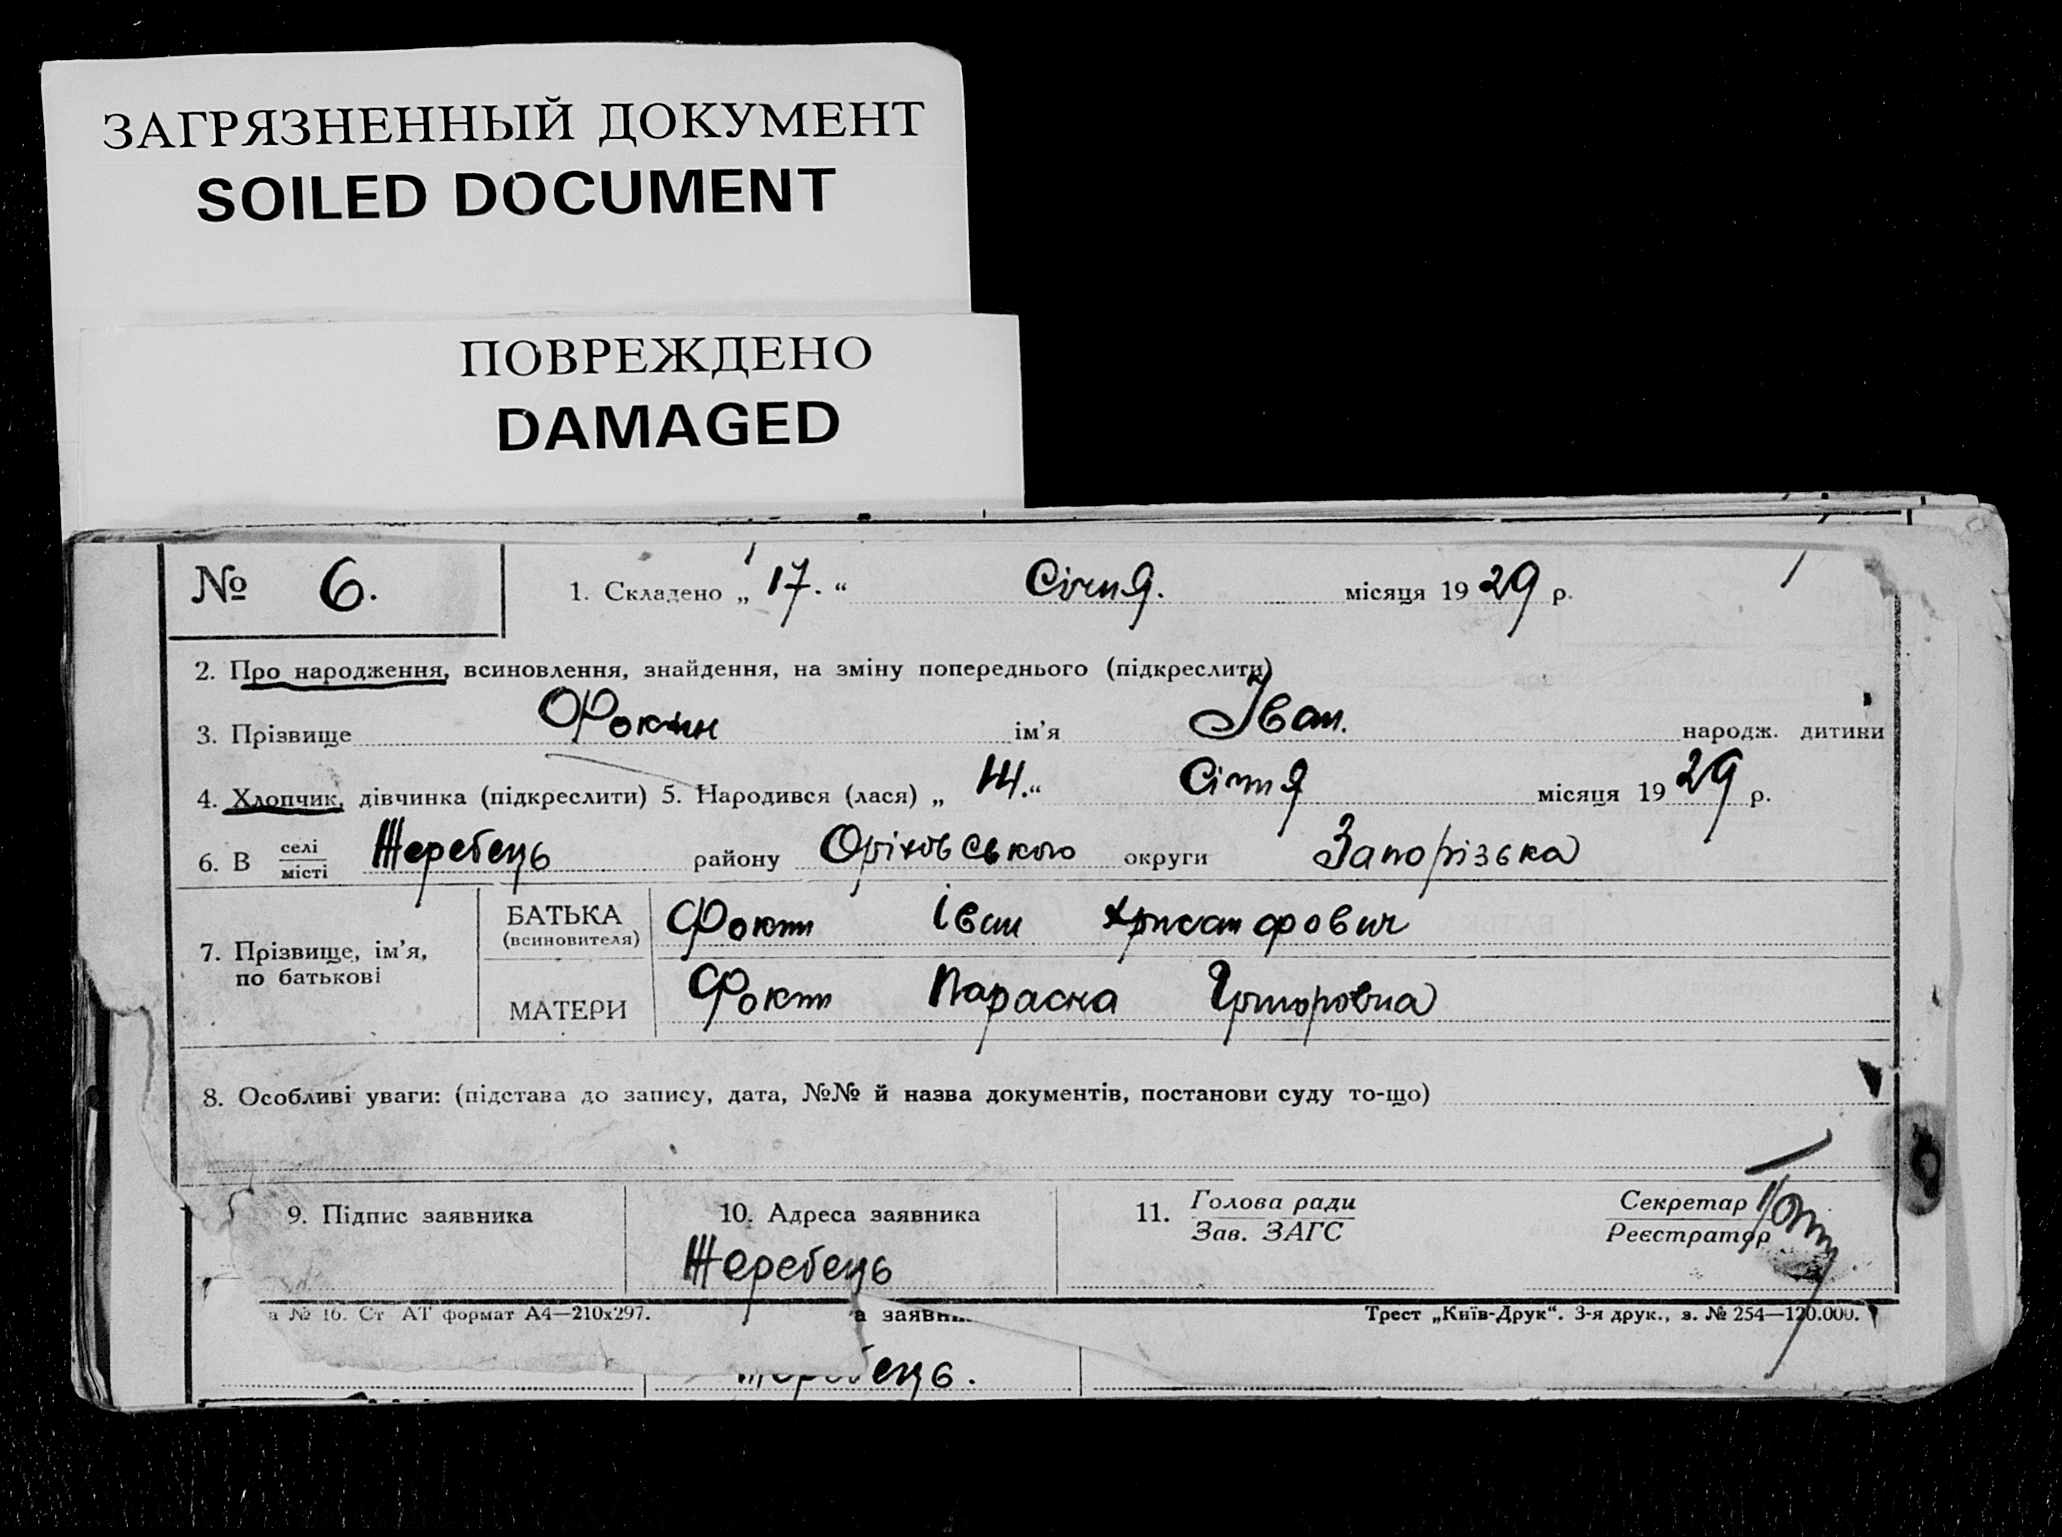 ЗАГРЯЗНЕННЫЙ ДОКУМЕНТ
SOILED DOCUMENT
ПОВРЕЖДЕНО
DAMAGED
№ 6. 1. Складено „ 17. “ Січня. місяця 19 29 р.
2. Про народження, всиновлення, знайдення, на зміну попереднього (підкреслити)
3. Прізвище Фокин ім’я Іван. народж. дитини
4. Хлопчик, дівчинка (підкреслити) 5. Народився (лася) „ “ Січня місяця 19 29 р.
6. В селі Жеребець району Оріховського округи Запорізька
місті
7. Прізвище, ім’я, по батькові
БАТЬКА (всиновителя) Фокин Іван Хрисанфович
МАТЕРИ Фокин Параска Григоровна
8. Особливі уваги: (підстава до запису, дата, №№ й назва документів, постанови суду то-що)
9. Підпис заявника 10. Адреса заявника 11. Голова ради Секретар
Зав. ЗАГС Реєстратор
Жеребець
№ 16. Ст АТ формат А4—210х297. Трест „Київ-Друк“. 3-я друк., з. № 254—120.000.